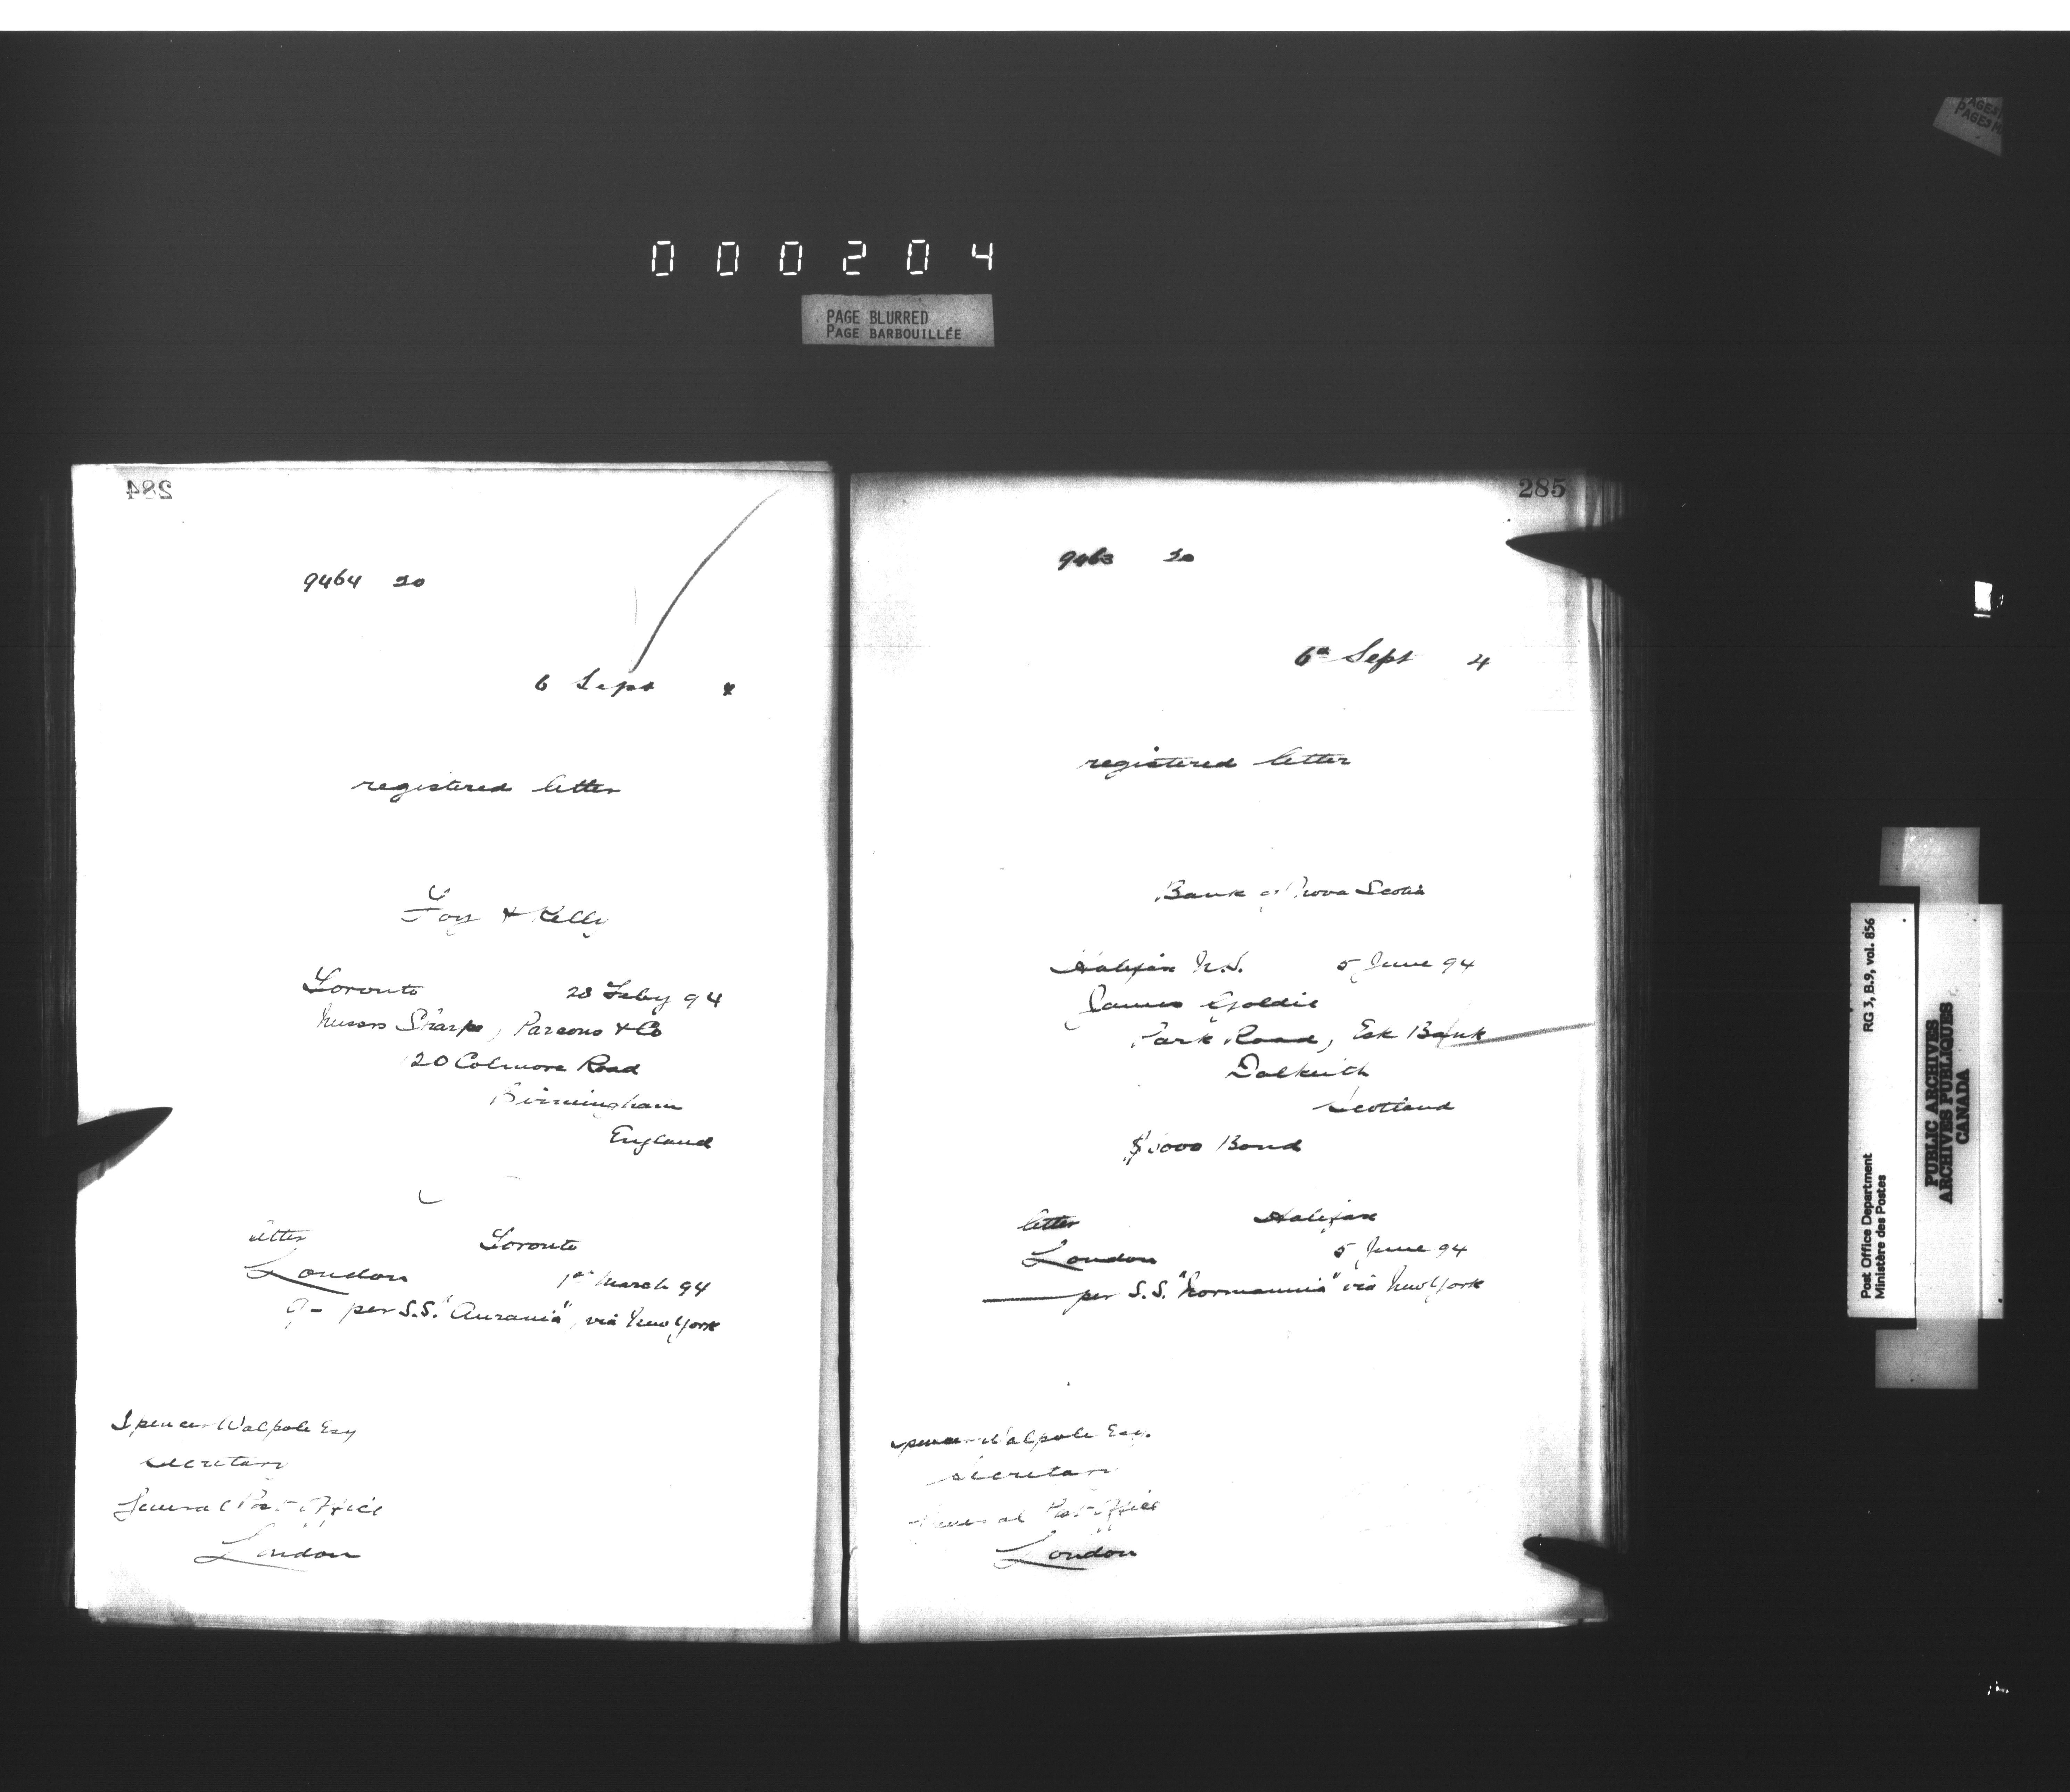 000204
PAGE BLURRED
PAGE BARBOUILLÉE
284
9464 20
6 Sept 4
registered letter
Foy & Kelly
Toronto 28 Feby 94
Messrs Sharpe, Parsons & Co
120 Colmore Road
Birmingham
England
letter Toronto
London 1st March 94
9- per S.S. "Aurania", via New York
Spencer Walpole Esq
Secretary
General Post Office
London
285
9463 20
6th Sept 4
registered letter
Bank of Nova Scotia
Halifax N.S. 5 June 94
James Goldie
Park Road, Esk Bank
Dalkeith
Scotland
$1000 Bond
letter Halifax
London 5 June 94
per S.S. "Normannia" via New York
Spencer Walpole Esq.
Secretary
General Post Office
London
Post Office Department RG 3, B.9, vol. 856
Ministère des Postes
PUBLIC ARCHIVES
ARCHIVES PUBLIQUES
CANADA